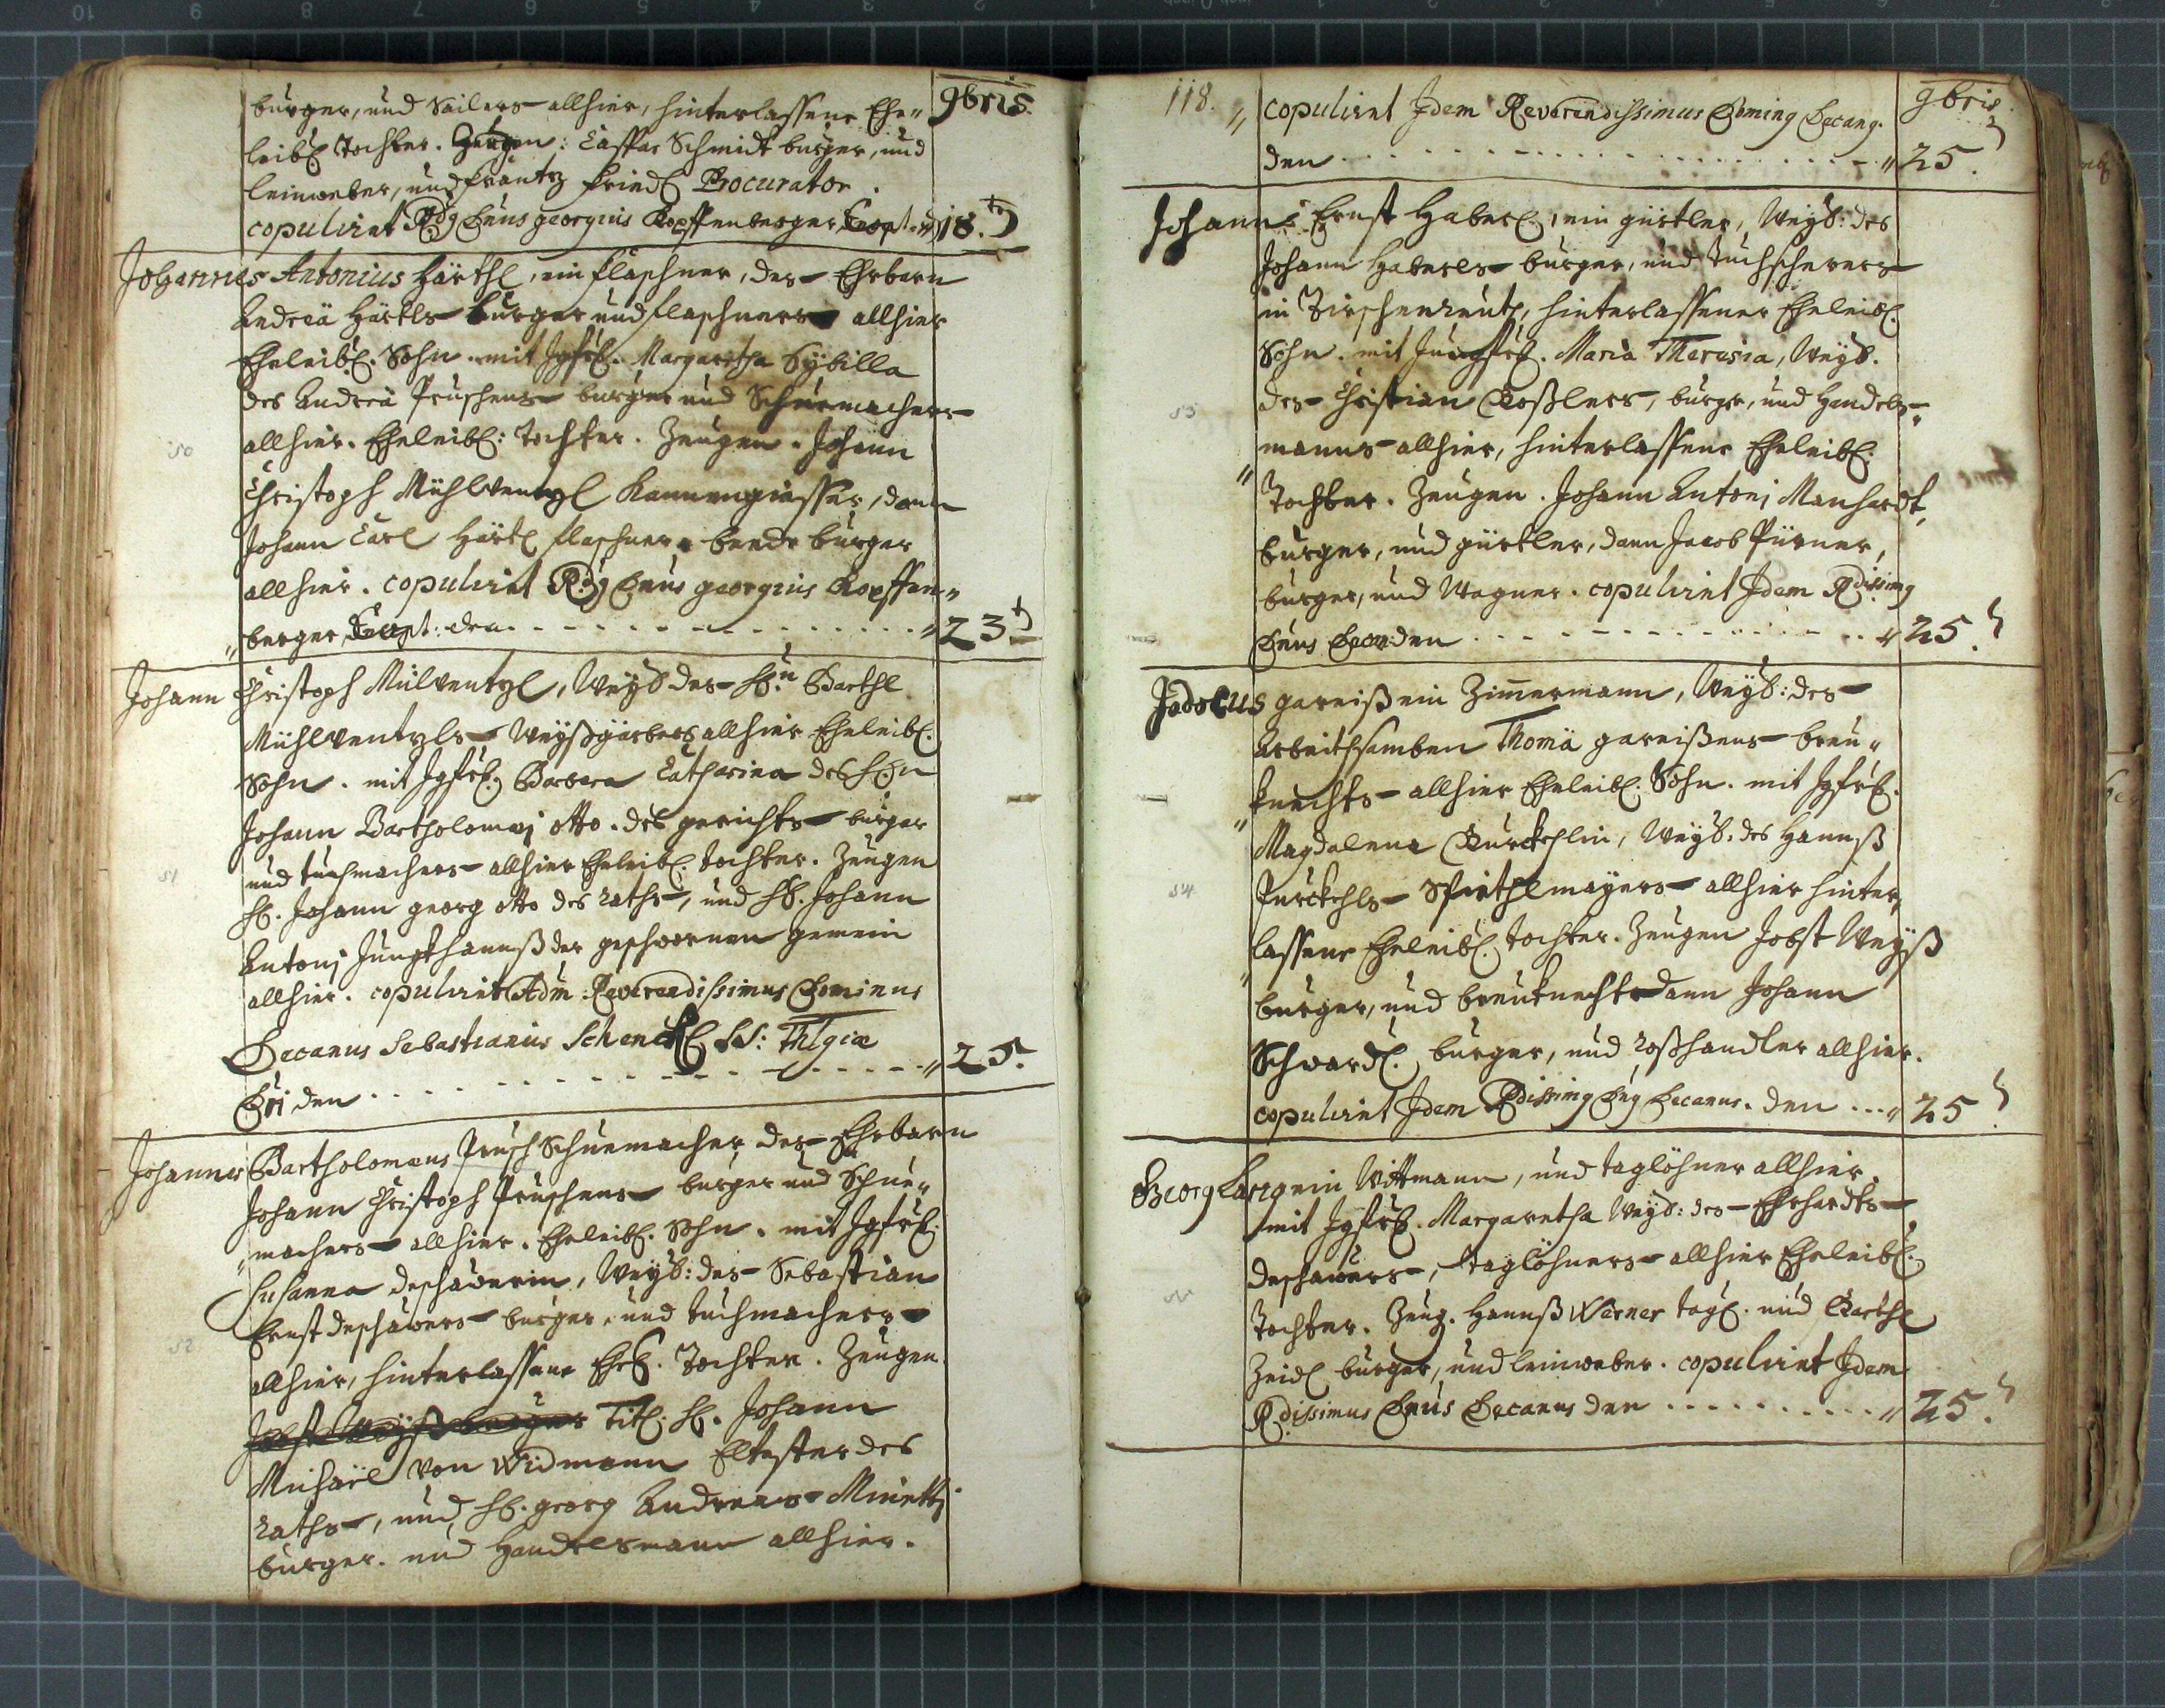 9bris.
burger, und Sailers allhier, hinterlassene Ehe„
leibl Tochter. Zeugen: Caspar Schmidt burger, und
leinweber, und Frantz Friedl Procurator.
copulirnt Rdg Dnus georgius Kopffenberger Coopt. d 18.
Johannes Antonius Härthl, ein flaschner, des Ehrbarn
Andreä Härtls burger und flaschners allhier
Eheleibl. Sohn. mit Jgfrl. Margaretha Sybilla
des Andreä Pruschens burger und Schuemachers
allhier. Eheleibl: Tochter. Zeugen. Johann
Christoph Mühlwentzl Kannengiesser, dann
Johann Carl Härtl flaschner beede burger
allhier. copulirnt Rdg Dnus georgius Kopffen„
„berger Coopt: den „ 23
50
Johann Christoph Mülwentzl, Weyb des H. Barthl
Mühlwentzls Weyßgärbers allhier Eheleibl.
Sohn. mit Jgfrl. Barbara Catharina des H.
Johann Bartholomaj Otto. des gerichts burger
und tuchmachers allhier Eheleibl. tochter. Zeugen
H. Johann georg Otto des Raths, und H. Johann
Antonj Jungkhannß der geschwornen gemein
allhier. copulirnt Adm: Reverendissimus Dominus
Decanus Sebastianus Schenckl SS: Thlgiæ
Dri den „ 25.
51
Johannes Bartholomæus Prusch Schuemacher des Ehrbarn
Johann Christoph Pruschens burger und Schue„
„machers allhier. Eheleibl. Sohn. mit Jgfrl.
Susanna Deschauerin, Weyb: des Sebastian
Ernst Deschauers burger, und tuchmachers
allhier, hinterlassene Ehel. Tochter. Zeugen
Titl: H. Johann
Michaël von Widmann Eltester des
Raths, und H. georg Andreas Minetti
burger. und Handelsmann allhier.
52
118. 9bris.
„ copulirnt Idem Reverendissimus Doming Decang.
den „ 25.
Johann Ernst Haberl, ein gürtler, Weyb: des
Johann Haberls burger, und Tuchscherers
in Tirschenreuth, hinterlassener Eheleibl.
Sohn. mit Jungfrl. Maria Theresia, Weyb.
des Christian Roßlers, burger, und Handels„
„manns allhier, hinterlassene Eheleibl.
Tochter. Zeugen. Johann Antonj Manhardt,
burger, und gürtler, dann Jacob Pürner,
burger, und Wagner. copulirnt Idem Rdissimg
Dnus Decan: den „ 25.
53
Jodocus gareiß ein Zimmermann, Weyb: des
Arbeithsamben Thomä gareißens breu„
„knechts allhier Eheleibl. Sohn. mit Jgfrl.
Magdalena Purckhlin, Weyb. des Hannß
Purckhls Spithlmayers allhier hinter„
„lassene Eheleibl. tochter. Zeugen Jobst Weyß
burger, und breuknecht dann Johann
Schwardl. burger, und Roßhandler allhier.
copulirnt Idem Rdissimg Dng Decanus. den „ 25
54
Georg ein Wittmann, und taglöhner allhier.
mit Jgfrl. Margaretha Weyb: des Ehrhardts
Deschauers, taglöhners allhier Eheleibl.
Tochter. Zeug. Hannß Werner tagl. und Barthl
Zeidl burger, und leinweber. copulirnt Idem
Rdissimus Dnus Decanus den „ 25.